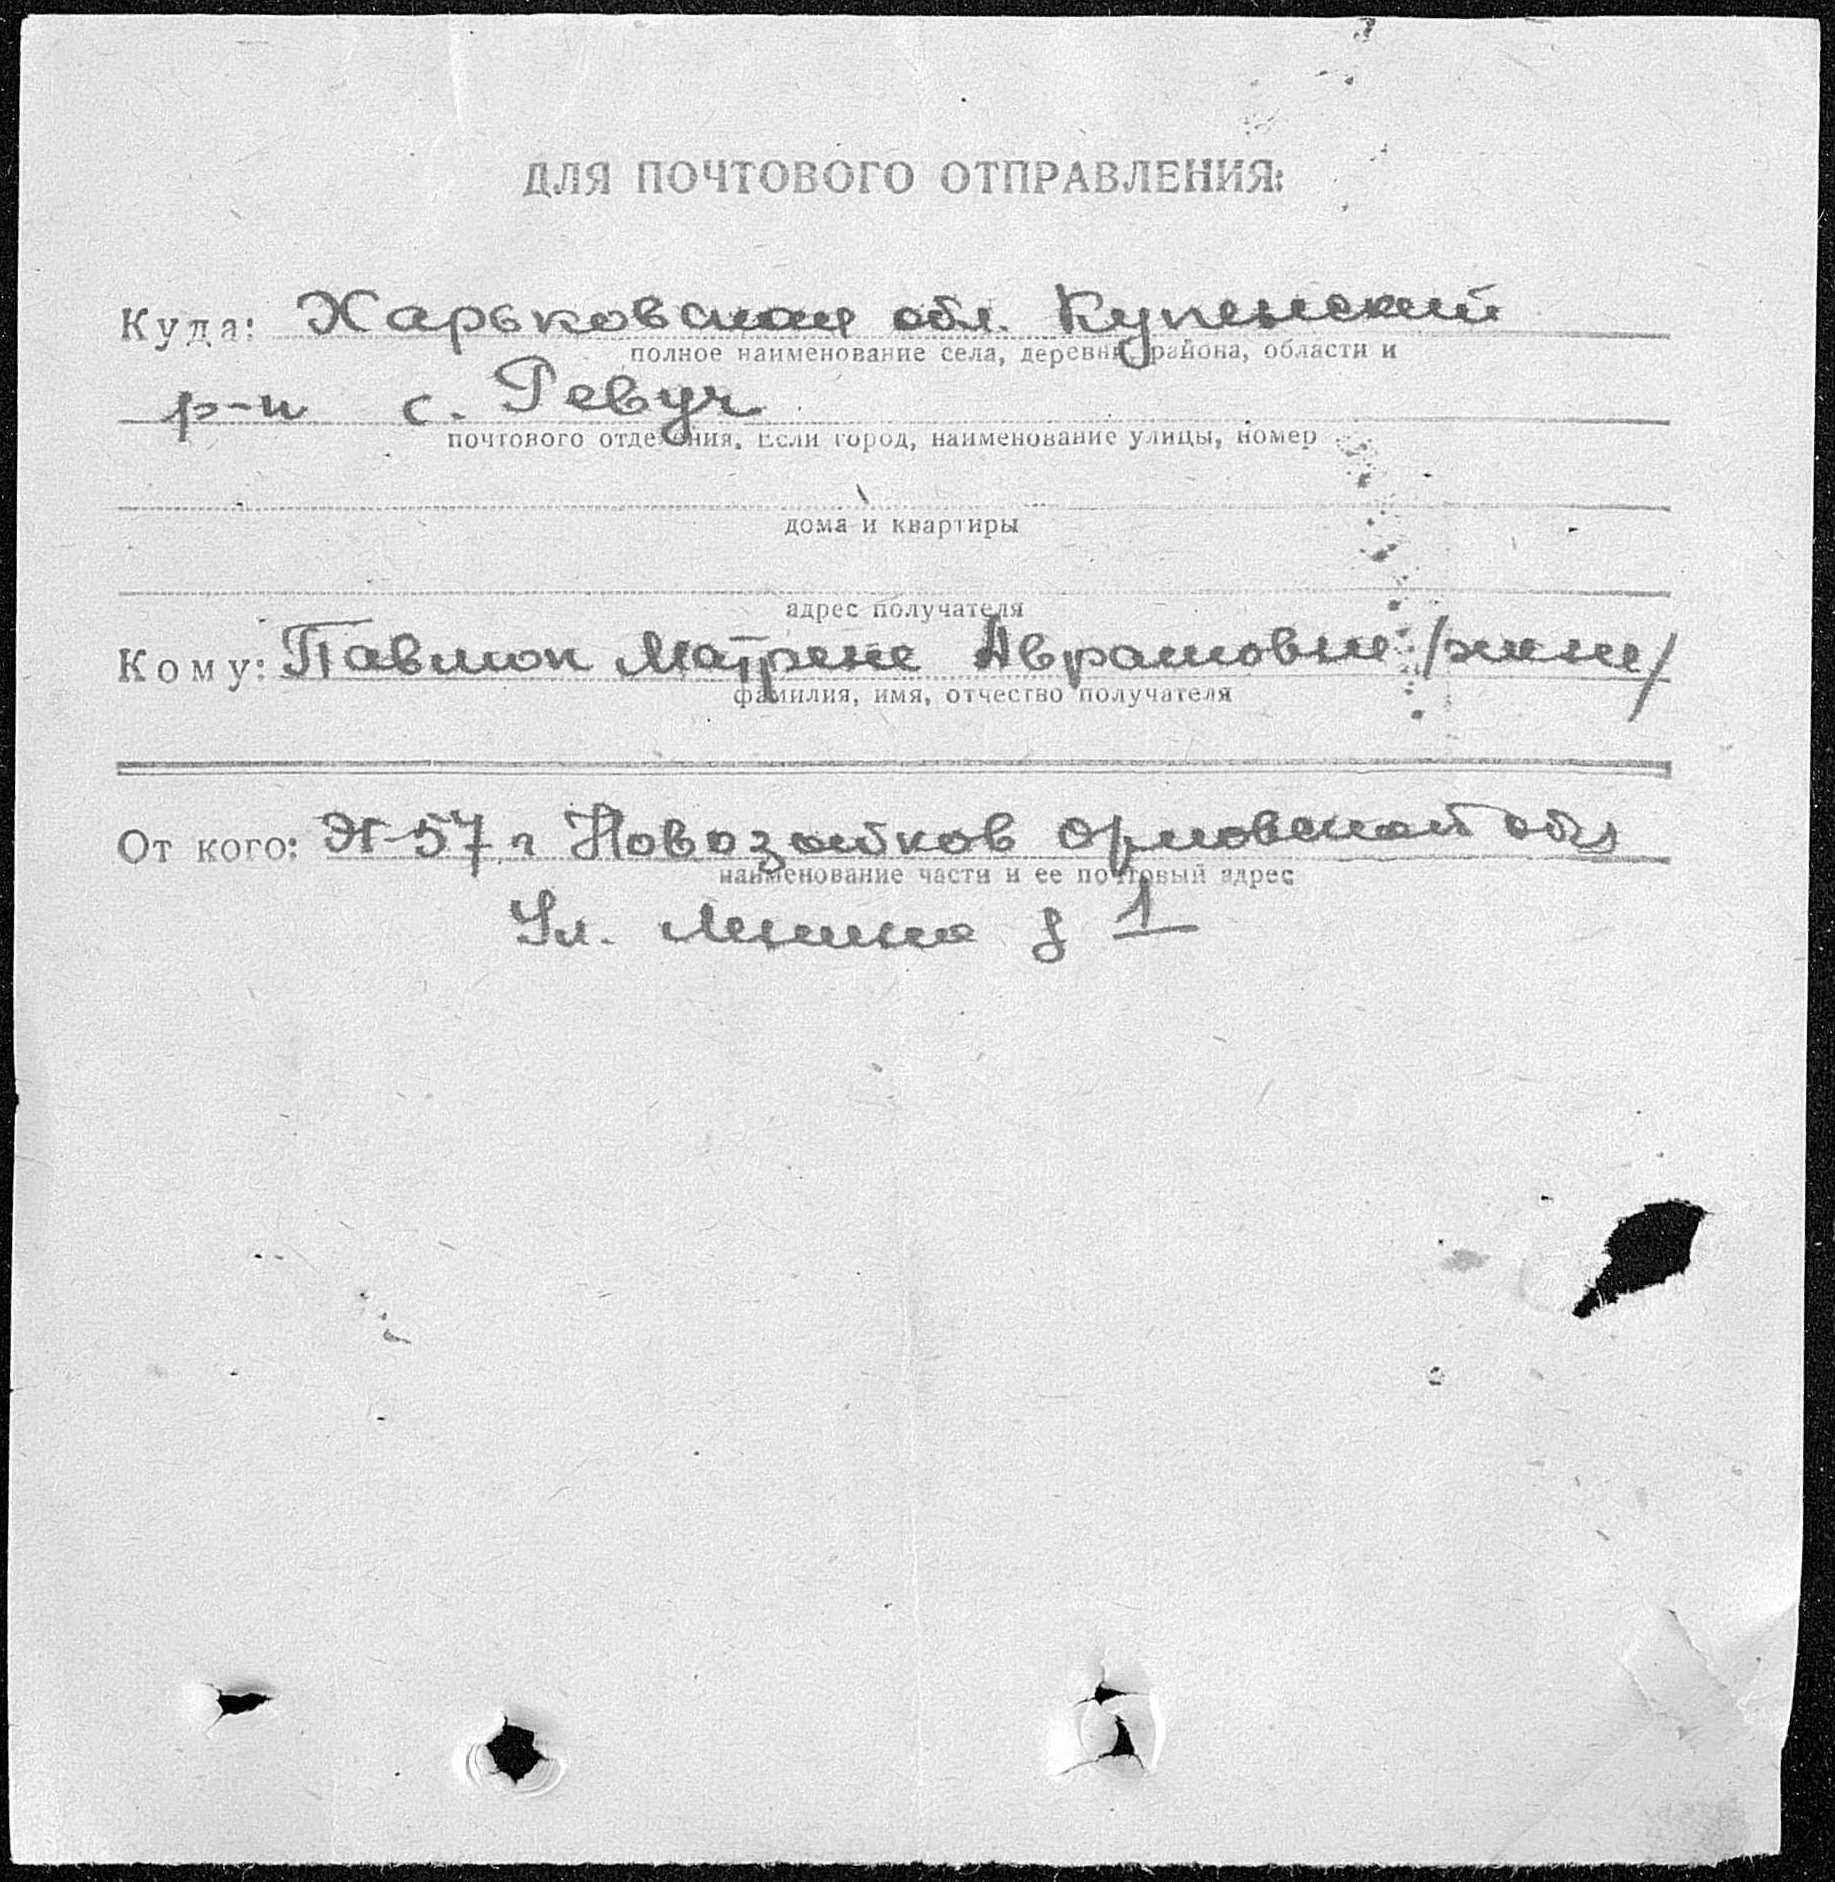 ДЛЯ ПОЧТОВОГО ОТПРАВЛЕНИЯ:
Куда: Харьковская обл. Купенский
полное наименование села, деревни, района, области и
р-н с. Ревуч
почтового отделения. Если город, наименование улицы, номер
дома и квартиры
адрес получателя
Кому: Павлюк Матрене Аврамовне /жене/
фамилия, имя, отчество получателя
От кого: 57 г Новозыбков Орловской обл
наименование части и ее почтовый адрес
Ул. Ленина д 1